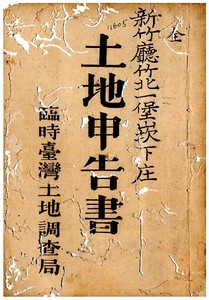 全
新竹廳竹北一堡崁下庄
11605
土地申告書
臨時臺灣土地調査局